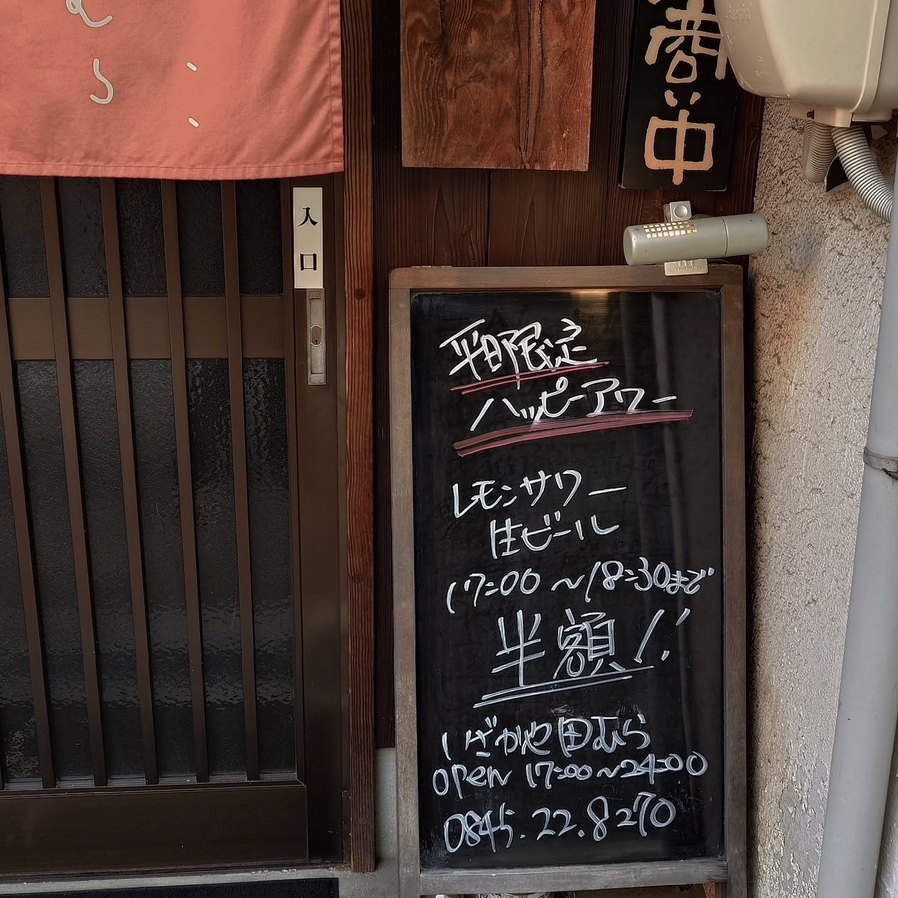 むら
商い中
入口
平日限定
ハッピーアワー
レモンサワー
生ビール
17:00〜18:30まで
半額!!
いざかや田むら
open 17:00〜24:00
0845.22.8270